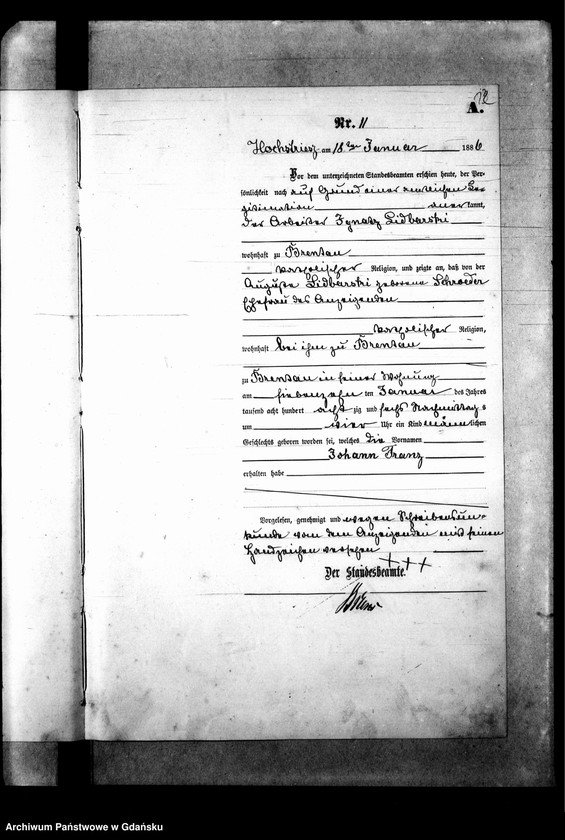 12
A.
Nr. 11
Hochstriess am 18ten Januar 1886
Vor dem unterzeichneten Standesbeamten erschien heute, der Per-
sönlichkeit nach auf Grund einer amtlichen Le-
gitimation aner kannt,
der Arbeiter Ignatz Lidbarski
wohnhaft zu Brentau
katholischer Religion, und zeigte an, daß von der
Auguste Lidbarski geborene Schroeder
Ehefrau des Anzeigenden
katholischer Religion,
wohnhaft bei ihm zu Brentau
zu Brentau in seiner Wohnung
am siebenzehn ten Januar des Jahres
tausend acht hundert acht zig und sechs Nachmittag s
um vier Uhr ein Kind männ lichen
Geschlechts geboren worden sei, welches die Vornamen
Johann Franz
erhalten habe
Vorgelesen, genehmigt und wegen Schreibensun-
kunde von dem Anzeigenden mit seinen
Handzeichen versehen
+++
Der Standesbeamte.
Archiwum Państwowe w Gdańsku